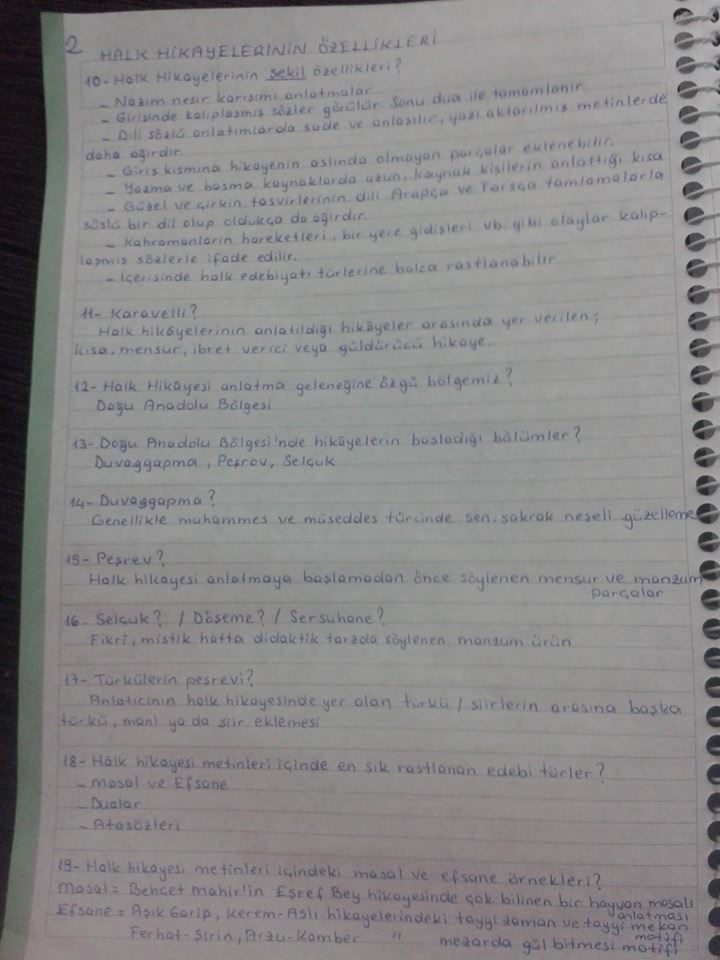 2 HALK HİKAYELERİNİN ÖZELLİKLERİ
10- Halk Hikayelerinin şekil özellikleri?
- Nazım nesir karışımı anlatmalar
- Girişinde kalıplaşmış sözler görülür. Sonu dua ile tamamlanır.
- Dili sözlü anlatımlarda sade ve anlaşılır, yazı aktarılmış metinlerde
daha ağırdır.
- Giriş kısmına hikayenin aslında olmayan parçalar eklenebilir.
- Yazma ve basma kaynaklarda uzun, kaynak kişilerin anlattığı kısa
- Güzel ve çirkin tasvirlerinin dili Arapça ve Farsça tamlamalarla
süslü bir dil olup oldukça da ağırdır.
- Kahramanların hareketleri, bir yere gidişleri vb. gibi olaylar kalıp-
laşmış sözlerle ifade edilir.
- İçerisinde halk edebiyatı türlerine bolca rastlanabilir
11- Karavelli?
Halk hikâyelerinin anlatıldığı hikâyeler arasında yer verilen;
kısa, mensur, ibret verici veya güldürücü hikaye.
12- Halk Hikâyesi anlatma geleneğine özgü bölgemiz?
Doğu Anadolu Bölgesi
13- Doğu Anadolu Bölgesi'nde hikâyelerin başladığı bölümler?
Duvaggapma, Peşrov, Selçuk
14- Duvaggapma?
Genellikle muhammes ve müseddes türünde şen, şakrak neşeli güzelleme
15- Peşrev?
Halk hikayesi anlatmaya başlamadan önce söylenen mensur ve manzum
parçalar
16- Selçuk? / Döşeme? / Sersuhane?
Fikrî, mistik hatta didaktik tarzda söylenen manzum ürün
17- Türkülerin peşrevi?
Anlatıcının halk hikayesinde yer alan türkü / şiirlerin arasına başka
türkü, mani ya da şiir eklemesi
18- Halk hikayesi metinleri içinde en sık rastlanan edebi türler?
- Masal ve Efsane
- Dualar
- Atasözleri
19- Halk hikayesi metinleri içindeki masal ve efsane örnekleri?
Masal = Behçet Mahir'in Eşref Bey hikayesinde çok bilinen bir hayvan masalı
anlatması
Efsane = Aşık Garip, Kerem-Aslı hikayelerindeki tayyi zaman ve tayyi mekan
motifi
Ferhat-Şirin, Arzu-Kamber " mezarda gül bitmesi motifi